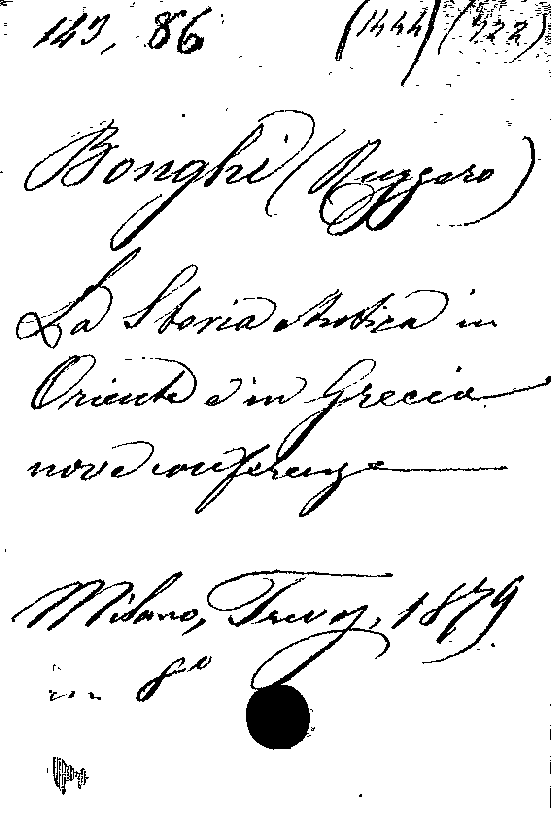 143, 86 (1444) (722)
Bonghi (Ruggero)
La Storia Antica in
Oriente e in Grecia
nove conferenze
Milano, Treves, 1879
in 8º